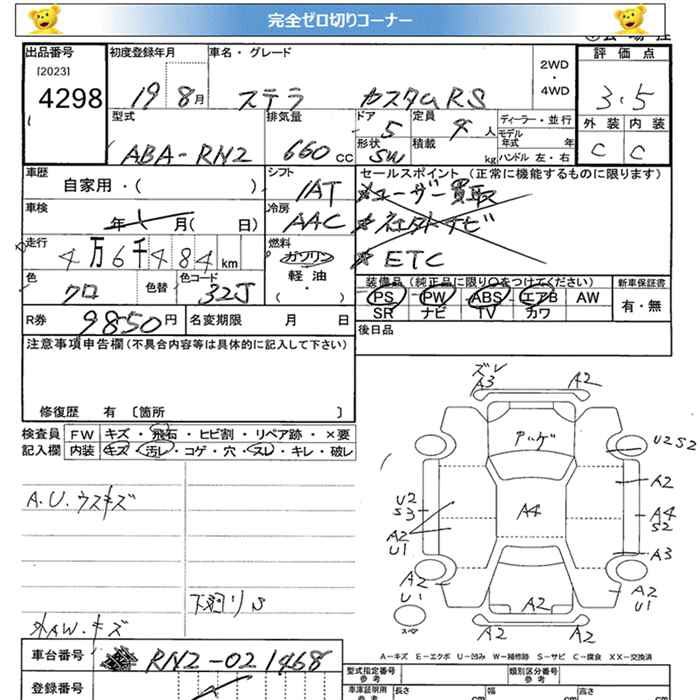 完全ゼロ切りコーナー
出品番号
[2023]
4298
初度登録年月
19 8月
車名・グレード
ステラ カスタムRS
2WD
・
4WD
評価点
3.5
外装 内装
C C
型式
ABA-RN2
排気量
660cc
ドア
5
定員
4人
形状
SW
積載
kg
ディーラー・並行
モデル
年式 年
ハンドル 左・右
車歴
自家用・( )
シフト
IAT
車検
年 月( 日)
冷房
AAC
走行
4万6千484km
燃料
ガソリン
軽油
( ・ )
色
クロ
色替
色コード
32J
R券
9850円
名変期限 月 日
セールスポイント (正常に機能するものに限ります)
ユーザー買取
ナビ
ETC
装備品 (純正品に限り○をつけてください)
新車保証書
PS PW ABS エアB AW
SR ナビ TV カワ
有・無
後日品
注意事項申告欄(不具合内容等は具体的に記入して下さい)
修復歴 有 〔箇所 〕
検査員
記入欄
FW キズ・飛石・ヒビ割・リペア跡・×要
内装 キズ・汚レ・コゲ・穴・スレ・キレ・破レ
A.U.ウスキズ
下廻りS
外AW.キズ
ズレ
A3
A2
アハゲ
U2 S2
A2
U2
S3
A4
A4
S2
A2
U1
A3
A2
U1
A2
U1
A2
A2
A2
スペア
A-キズ E-エクボ U-凹み W-補修跡 S-サビ C-腐食 XX-交換済
車台番号
RN2-021468
登録番号
型式指定番号
参考
類別区分番号
参考
車庫証明用
参考
長さ
cm
幅
cm
高さ
cm